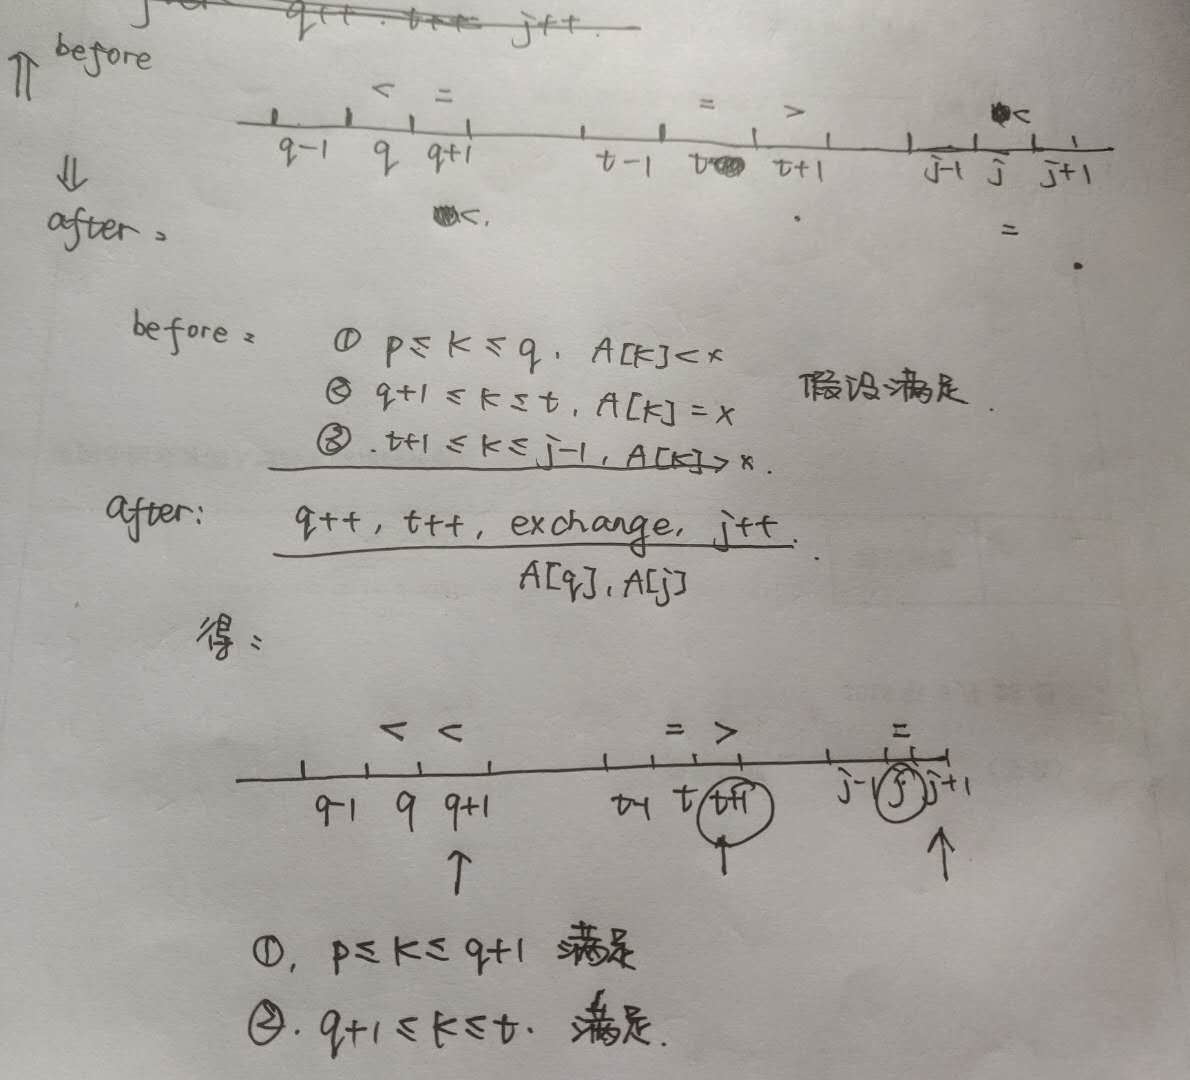 q++. t++ j++.
before
< = = > <
q-1 q q+1 t-1 t t+1 j-1 j j+1
after:
<. =
before: ① p≤k≤q. A[k]<x
② q+1≤k≤t, A[k]=x 假设满足.
③. t+1≤k≤j-1, A[k]>x.
after: q++, t++, exchange, j++.
A[q], A[j]
得:
< < = > =
q-1 q q+1 t-1 t t+1 j-1 j j+1
↑ ↑ ↑
①. p≤k≤q+1 满足
②. q+1≤k≤t. 满足.